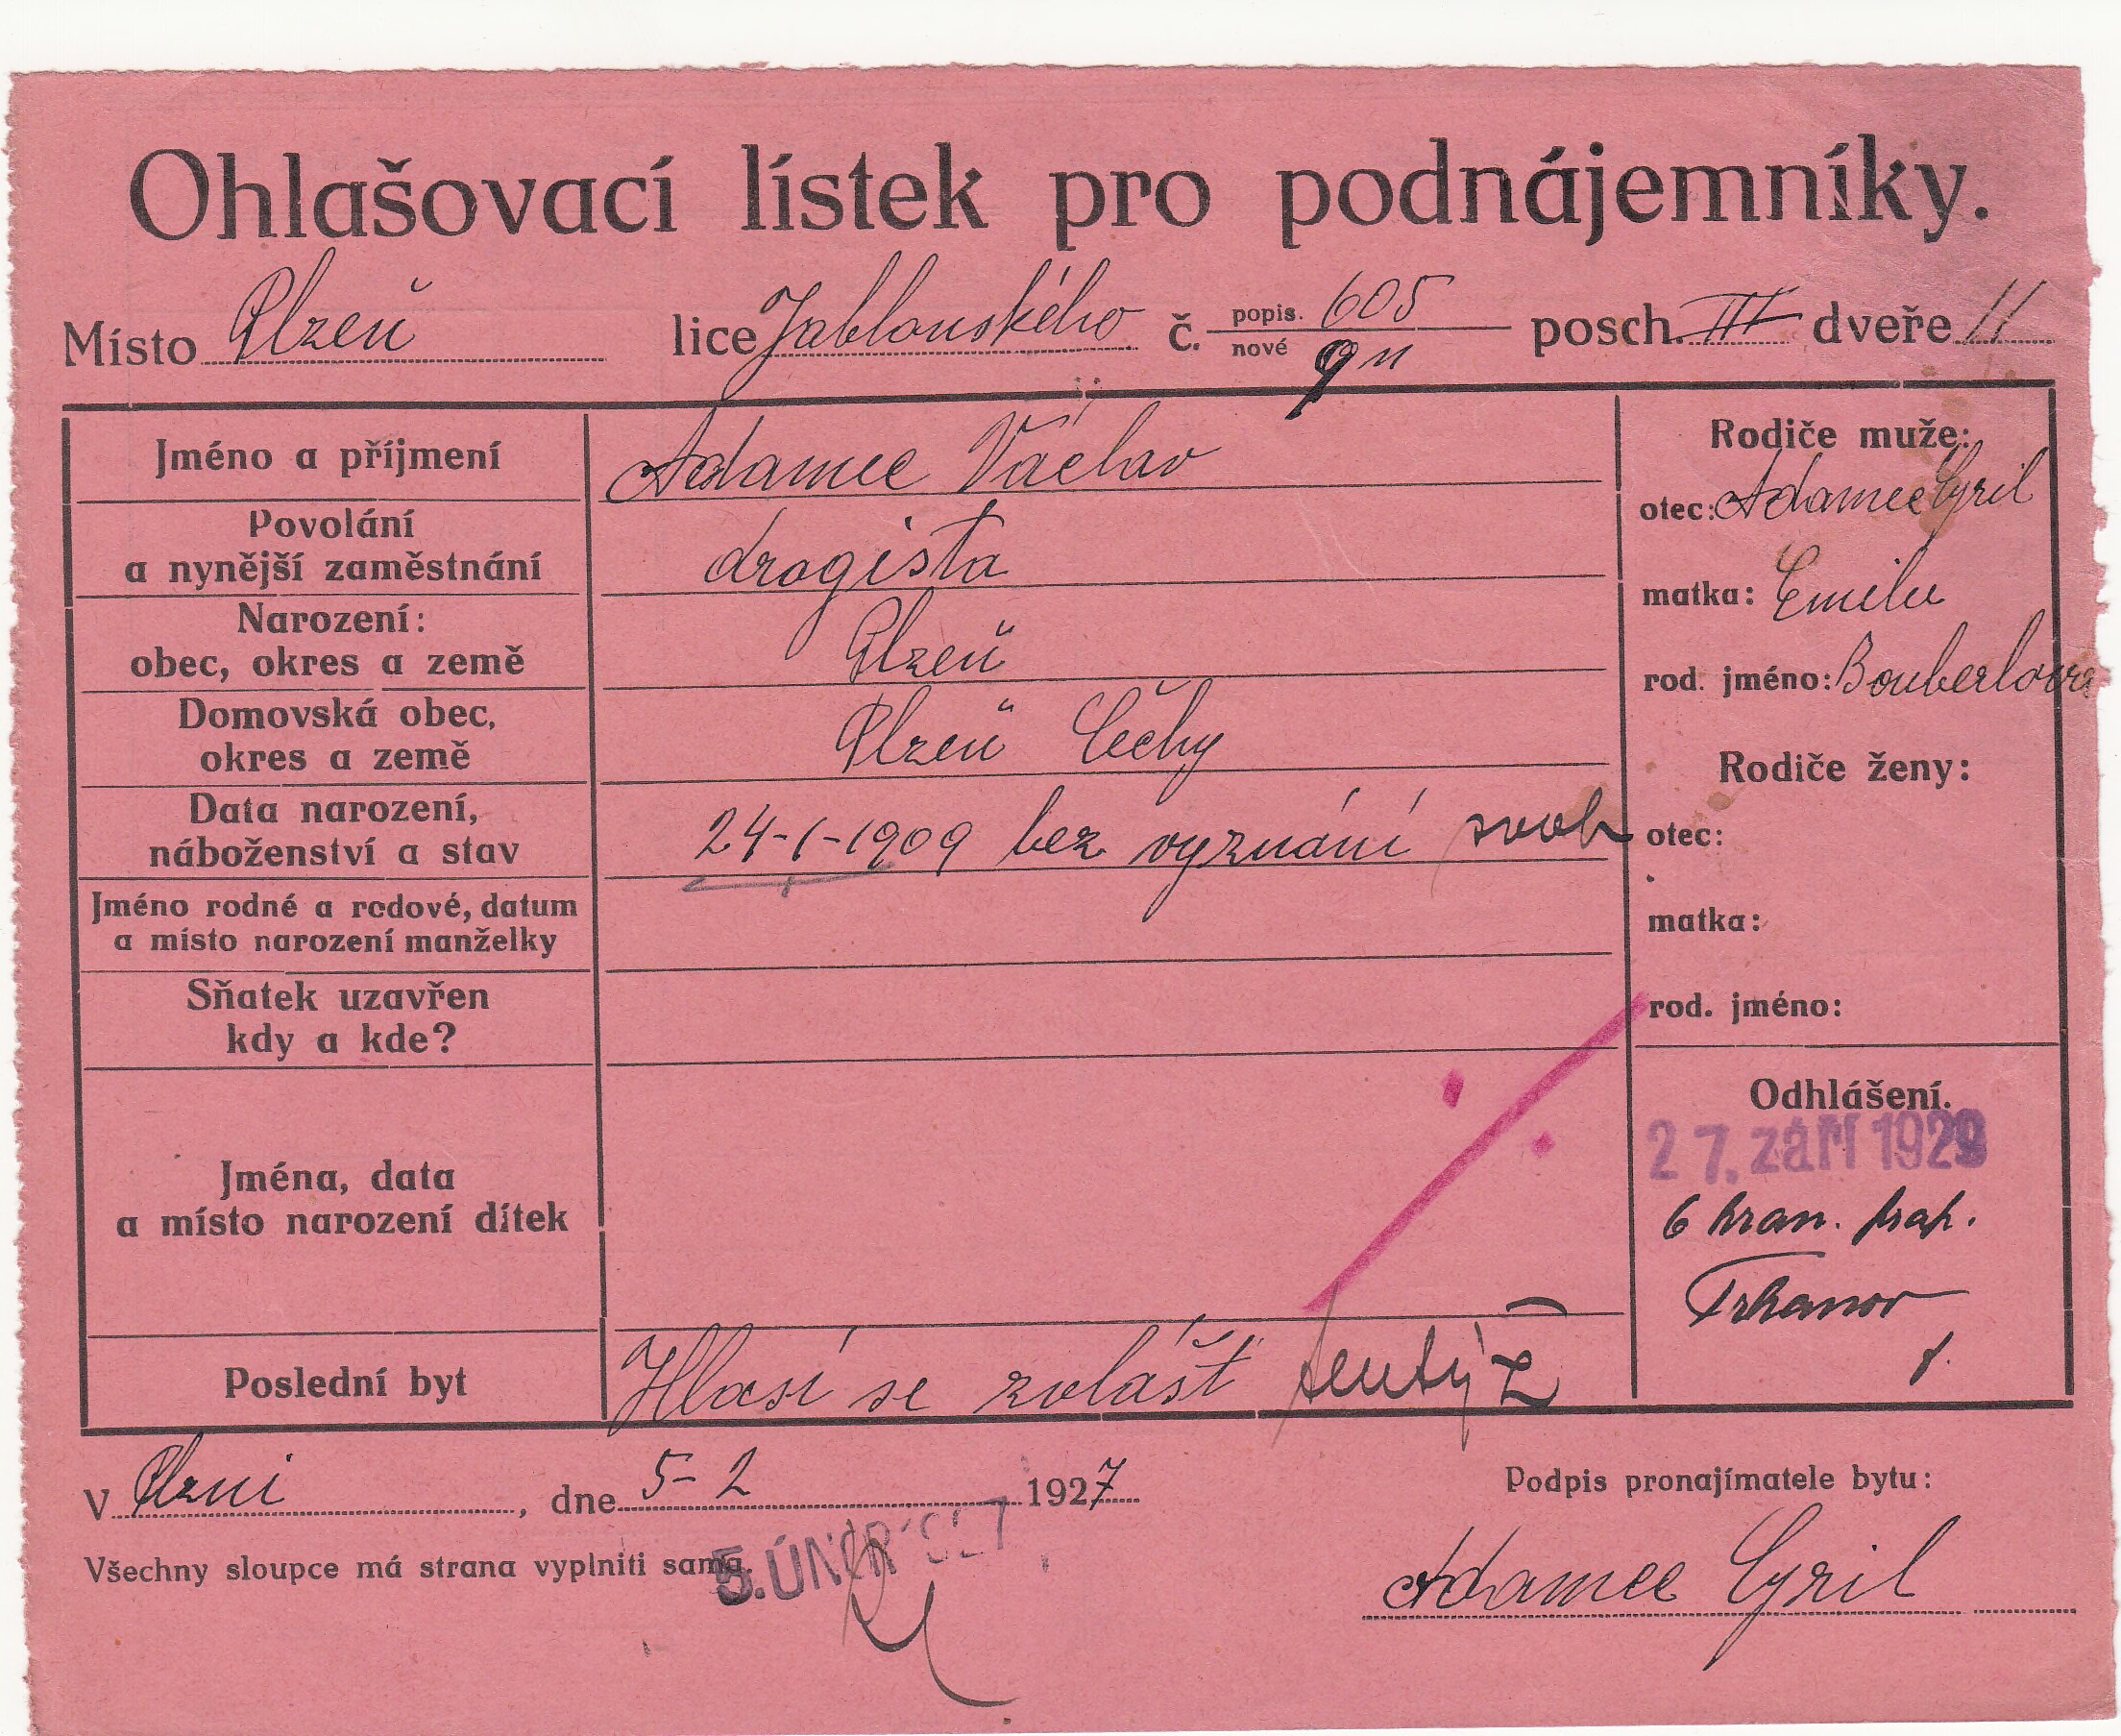 Ohlašovací lístek pro podnájemníky.
Místo Plzeň lice Jablonského č. popis. 605 nové 9 posch. III dveře 11
Jméno a příjmení Adamec Václav
Povolání
a nynější zaměstnání drogista
Narození:
obec, okres a země Plzeň
Domovská obec,
okres a země Plzeň Čechy
Data narození,
náboženství a stav 24-1-1909 bez vyznání svob
Jméno rodné a rodové, datum
a místo narození manželky
Sňatek uzavřen
kdy a kde?
Jména, data
a místo narození dítek
Poslední byt Hlásí se zvlášť tentýž
Rodiče muže:
otec: Adamec Cyril
matka: Emilie
rod. jméno:
Rodiče ženy:
otec:
matka:
rod. jméno:
Odhlášení.
27. září 1929
6 hran. prap.
Trhanov
V Plzni, dne 5-2 1927
Všechny sloupce má strana vyplniti sama.
5. ÚNOR 1927
Podpis pronajímatele bytu:
Adamec Cyril